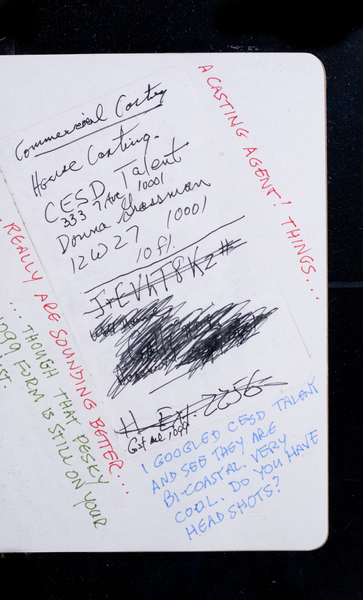 Commercial Casting
House Casting.
CESD Talent
333 7 Ave 10001
Donna Grossman
12 W 27 10001
10 fl.
Get me 1099
A CASTING AGENT! THINGS...
...REALLY ARE SOUNDING BETTER...
... THOUGH THAT PESKY
1099 FORM IS STILL ON YOUR
I GOOGLED CESD TALENT
AND SEE THEY ARE
BI-COASTAL. VERY
COOL. DO YOU HAVE
HEAD SHOTS?